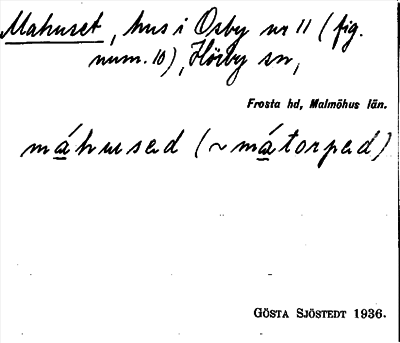 Mahuset, hus i Osby nr 11 (fig.
num. 10), Hörby sn,
Frosta hd, Malmöhus län.
máhused (~ mátorped)
GÖSTA SJÖSTEDT 1936.